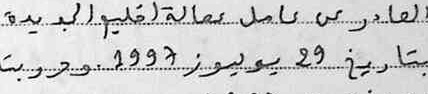 الصادر عن عامل عمالة إقليم الجديدة
بتاريخ 29 يوليوز 1997